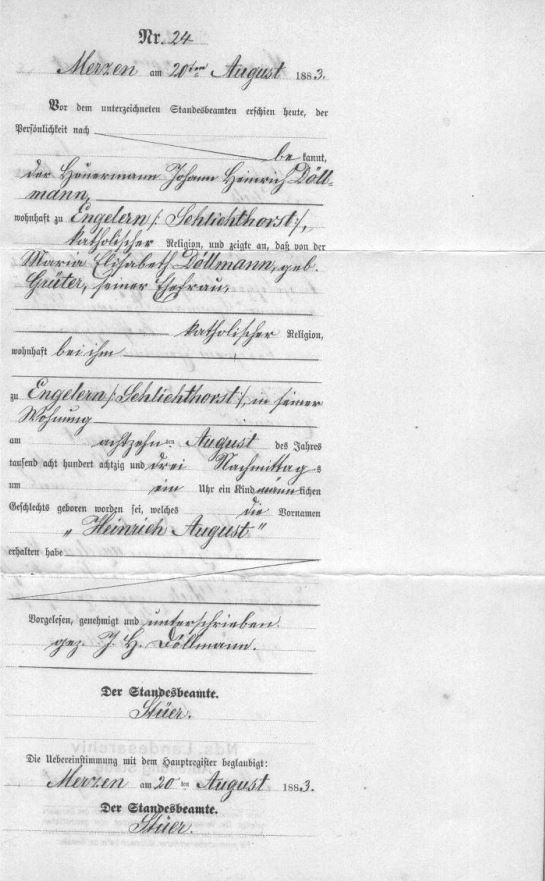 Nr. 24
Merzen am 20ten August 1883.
Vor dem unterzeichneten Standesbeamten erschien heute, der
Persönlichkeit nach
be kannt,
der Heuermann Johann Heinrich Döll-
mann,
wohnhaft zu Engelern /: Schlichthorst :/,
katholischer Religion, und zeigte an, daß von der
Maria Elisabeth Döllmann, geb.
Güter, seiner Ehefrau,
katholischer Religion,
wohnhaft bei ihm
zu Engelern /: Schlichthorst :/, in seiner
Wohnung
am achtzehnten August des Jahres
tausend acht hundert achtzig und drei Nachmittags
um ein Uhr ein Kind männlichen
Geschlechts geboren worden sei, welches die Vornamen
„Heinrich August"
erhalten habe
Vorgelesen, genehmigt und unterschrieben.
gez. J. H. Döllmann.
Der Standesbeamte.
Stüer.
Die Uebereinstimmung mit dem Hauptregister beglaubigt:
Merzen am 20ten August 1883.
Der Standesbeamte.
Stüer.